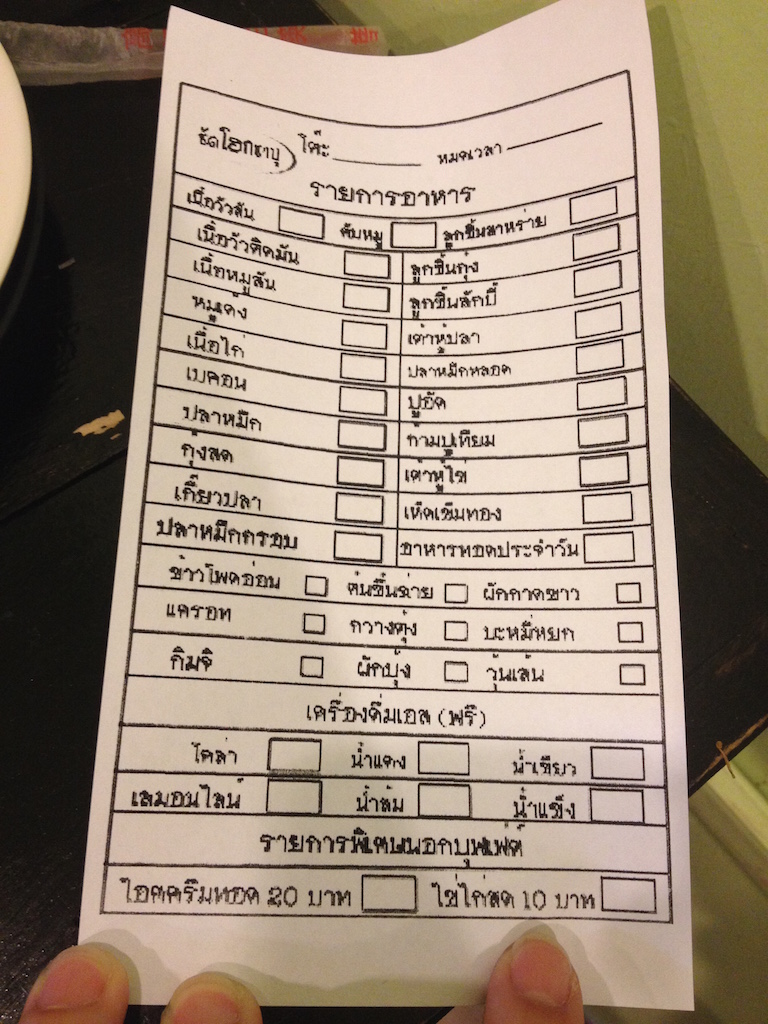 โต๊ะ ________ หมดเวลา ________
รายการอาหาร
เนื้อวัวสัน ตับหมู ลูกชิ้นสาหร่าย
เนื้อวัวติดมัน ลูกชิ้นกุ้ง
เนื้อหมูสัน ลูกชิ้นลักบี้
หมูเด้ง เต้าหู้ปลา
เนื้อไก่ ปลาหมึกหลอด
เบคอน ปูอัด
ปลาหมึก ก้ามปูเทียม
กุ้งสด เต้าหู้ไข่
เกี๊ยวปลา เห็ดเข็มทอง
ปลาหมึกกรอบ อาหารทอดประจำวัน
ข้าวโพดอ่อน ต้นขึ้นฉ่าย ผักกาดขาว
แครอท กวางตุ้ง บะหมี่หยก
กิมจิ ผักบุ้ง วุ้นเส้น
เครื่องดื่มเอส (ฟรี)
โคล่า น้ำแดง น้ำเขียว
เลมอนไลน์ น้ำส้ม น้ำแข็ง
รายการพิเศษนอกบุฟเฟ่ต์
ไอศครีมทอด 20 บาท ไข่ไก่สด 10 บาท